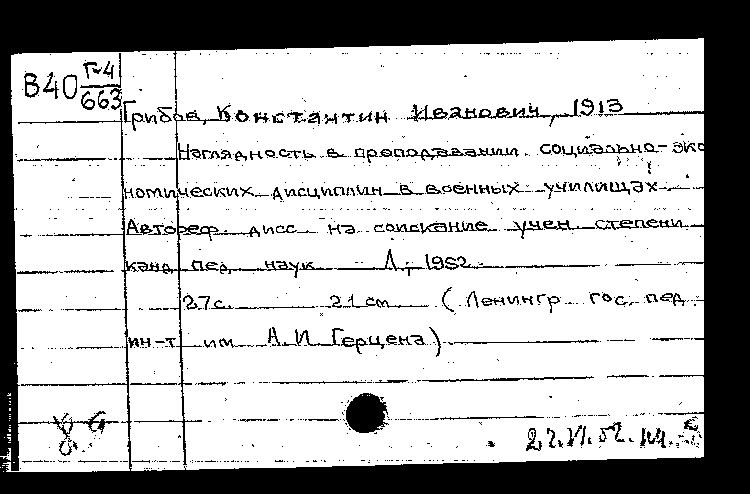 В40 Г-4
663
Грибов, Константин Иванович, 1913
Наглядность в преподавании социально-эко
номических дисциплин в военных училищах.
Автореф. дисс. на соискание учен степени
канд пед наук Л., 1952.
27с. 21 см (Ленингр гос. пед.
ин-т им А.И Герцена)